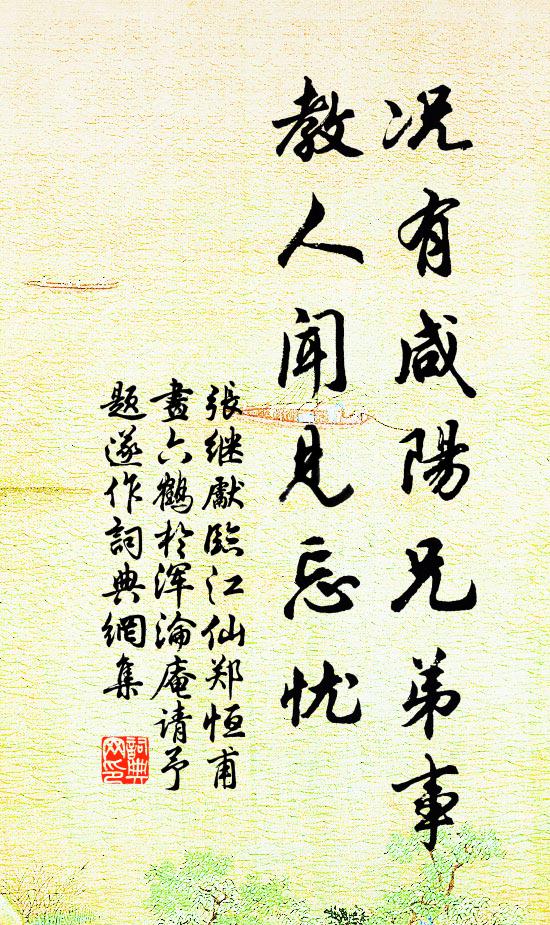 况有咸陽兄弟事
教人聞見忘忧
張继獻臨江仙郑恒甫
畫六鶴於浑淪庵请予
題遂作詞典網集
詞典
网印